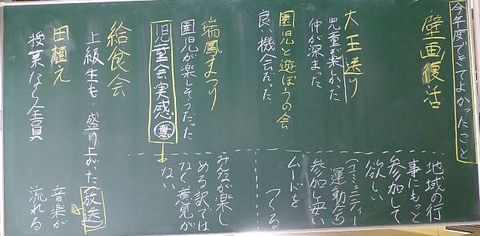 今年度できてよかったこと
壁画復活
大王送り
児童が楽しめた
仲が深まった
園児と遊ぼうの会
良い機会だった
瑞鳳まつり
園児が楽しそうだった
児童会実感
給食会
上級生も、盛り上がった
放送
田植え
授業なく全員
地域の行
事にもっと
参加して
欲しい
(コミュニティー
運動会
参加し無い
ムードを
つくる
みんなが楽し
める訳では
なく意見が
ない
音楽が
流れる